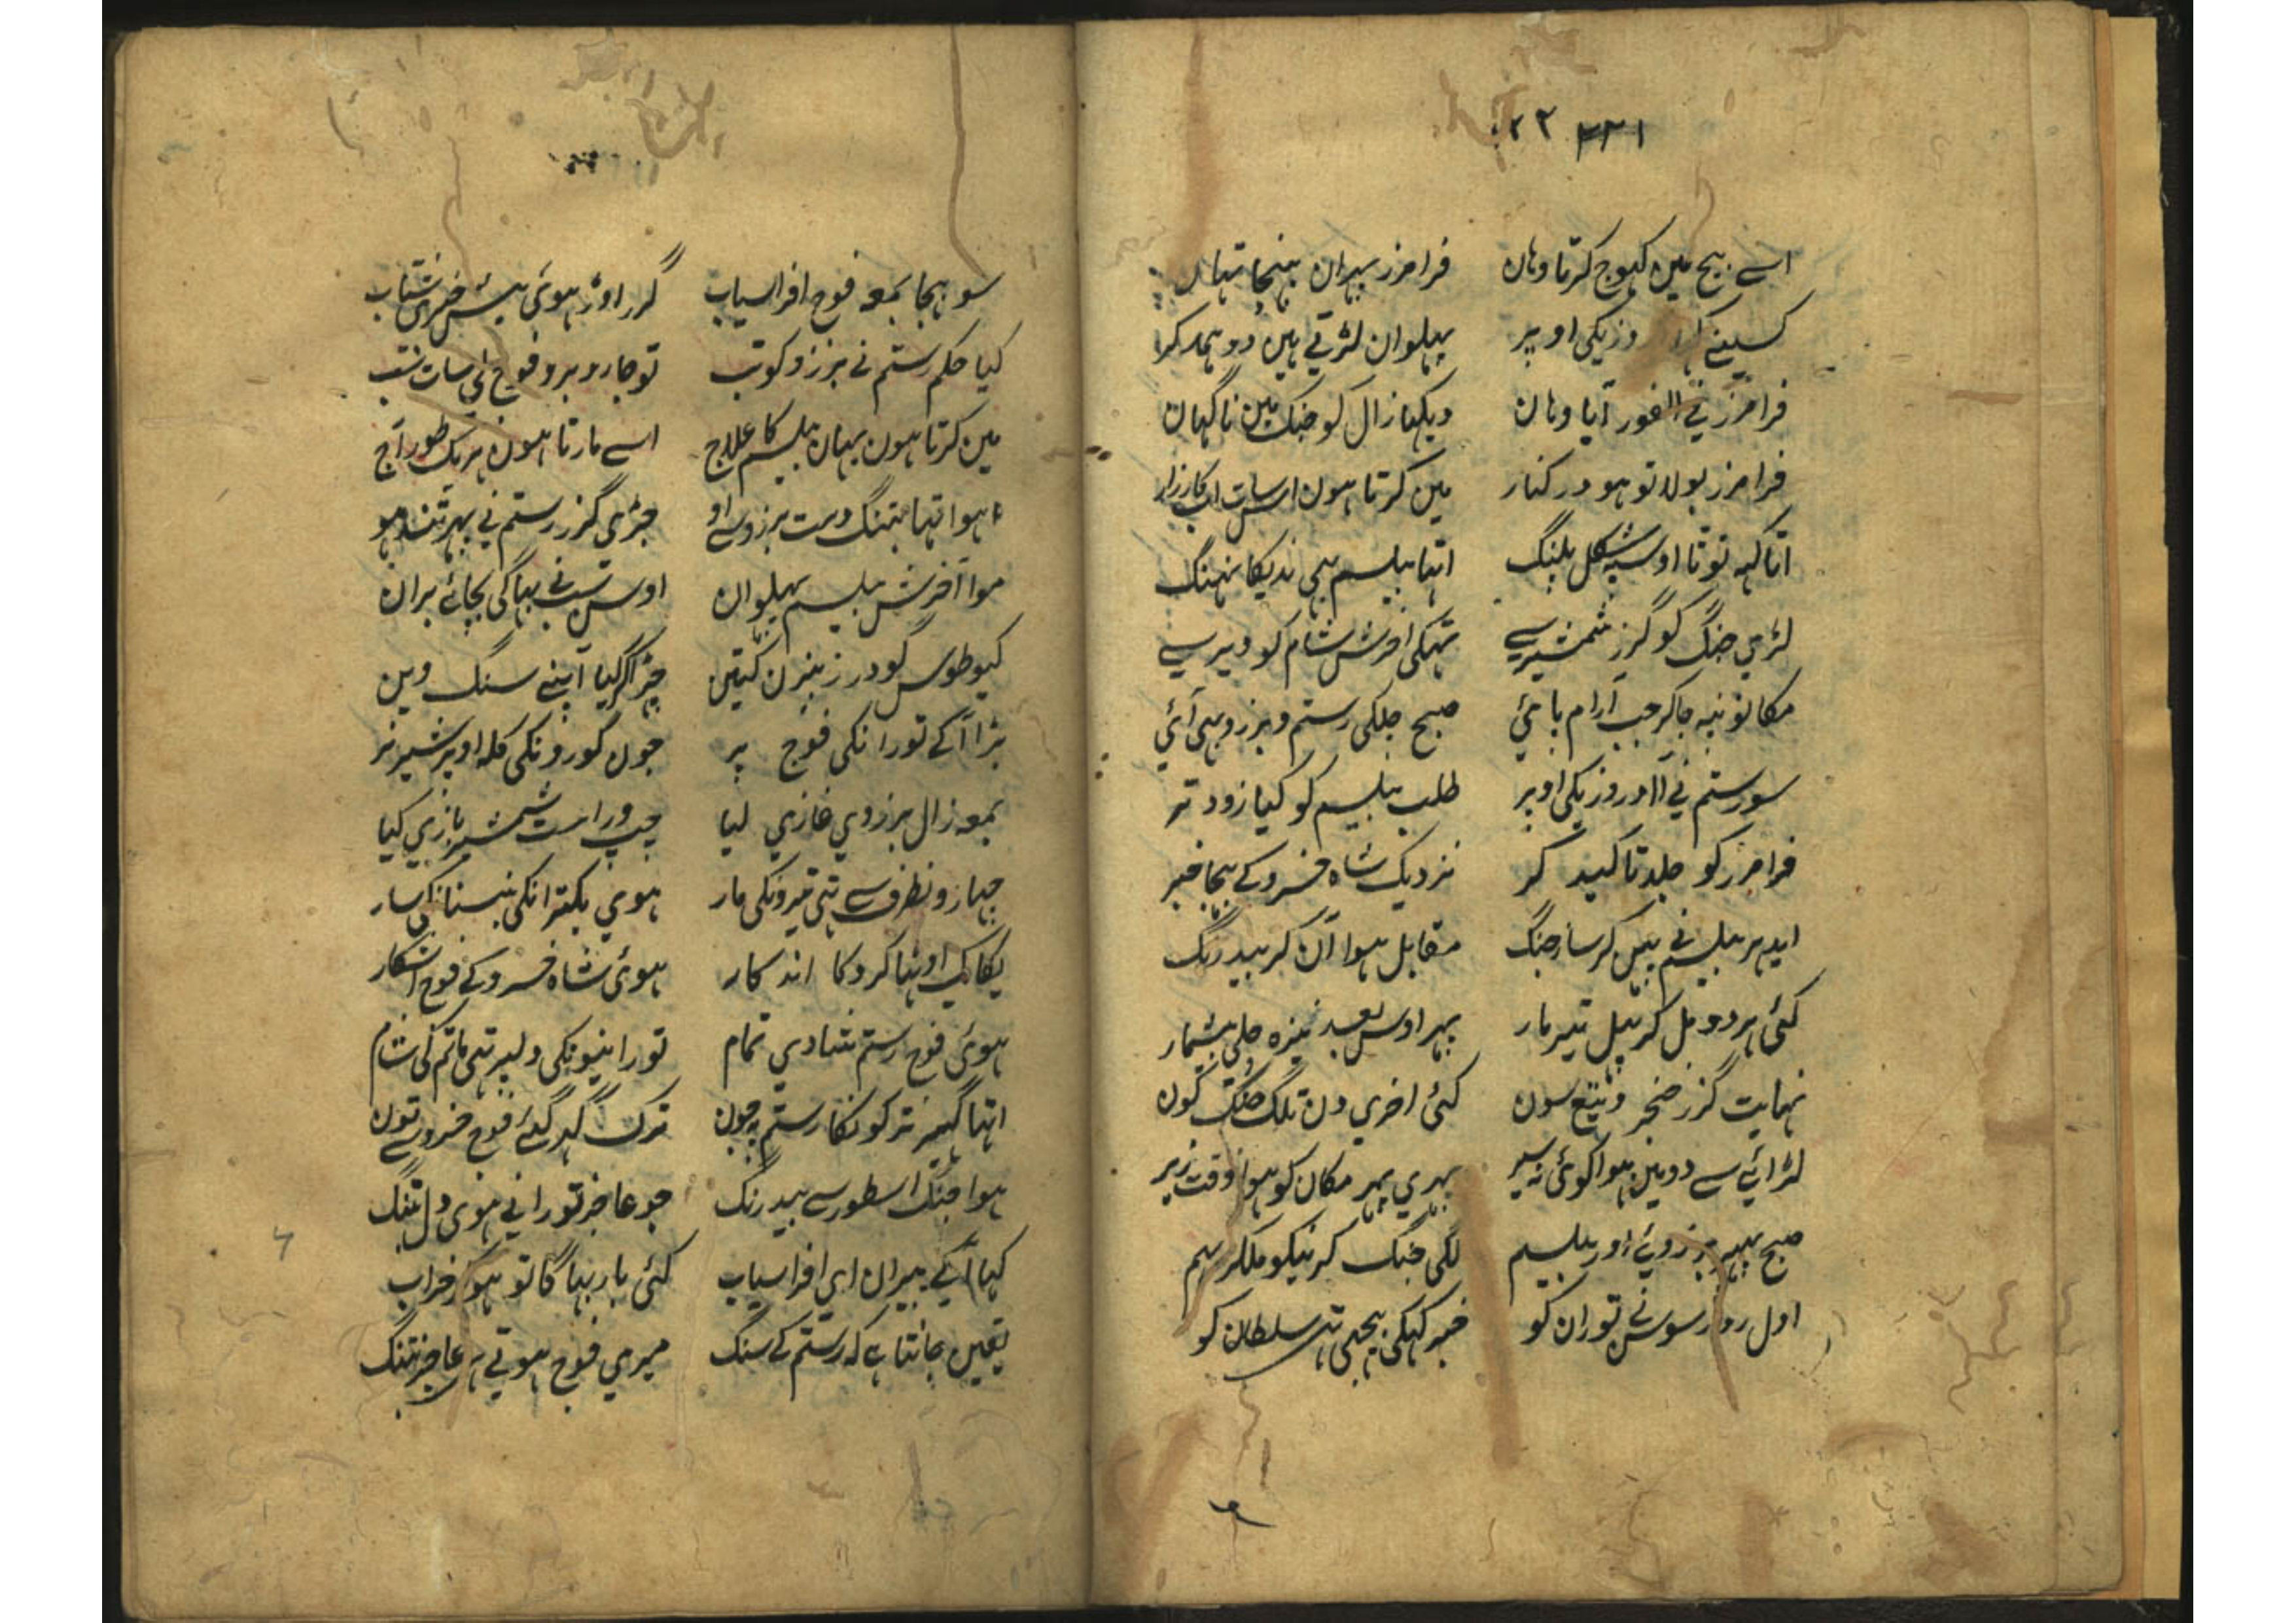 ۲۲ ۲۲۱
اسے بیچ مین کہوج کرتا وہان فرامرز بہران پنہچا تہا
کسینے وزیکی اوپر پہلوان لڑتے ہین دو ہمدکر
فرامرز نے الفور آیا وہان دیکہا زال کو جنک مین ناگہان
فرامرز بولا تو ہو در کنار مین کرتا ہون اس سات اب کارزار
اتا کہہ توتا اوسپہ شکل پلنگ اتہا پیلسم بہی ندیکا نہنگ
لڑی جنگ کو گرز شمشیر سے تہکی اخرش شام کو دیر سے
مکانونپہ جاکر جب آرام پائی صبح جلکی رستم و برزو بہی آئی
سو رستم نے آ اوروزیکی اوپر طلب پیلسم کو کیا زود تر
فرامرز کو جلد تاکید کر نزدیک شاہ خسرو کے بہجا خبر
ایدہر پیلسم نے پیس کر ساز جنگ مقابل ہوا آن کر بیدرنگ
کئی ہردو مل کر پیل تیر مار پہر اوس بعد نیزہ چلی بیشمار
نہایت گرز خنجر و تیغ سون کئی اخری دن تلگ جنگ کون
لڑائے سے دو مین ہوا کوئی نہ سیر پہری پہر مکان کو ہوا وقت زیر
صبح پہر برزوئے اور پیلسم لگی جنگ کرنیکو ملکر بہم
اول روز سوس نے توران کو خبر کہکی بیجی تہی سلطان کو
سو بہجا بمعہ فوج افراسیاب گرر اوڑ ہوئی شتاب
کیا حکم رستم نے برزو کو تب تو جا روبرو فوج کی سات تب
مین کرتا ہون یہان پیلسم کا علاج اسے مارتا ہون ہریک طور آج
ہوا تہا بتنگ دست برزو سے او جڑی گرز رستم نے پہر تند ہو
موا آخرش پیلسم پہلوان اوس تب نے بہاگی بجائے بران
کیو طوس گودرز بیزن کیتین چڑاکر گیا آپنے سنگ وین
پڑا آکے تورانکی فوج پر جون گورونکی کلہ اوپر شیر نر
بمعہ زال برزوی غازی لیا چپ و راست شمشیر بازی کیا
چہارونطرف سے تہی تیرونکی مار ہوی بکترانکی سار
یکایک اوٹہا کرد کا اندکار ہوئی شاہ خسرو کے فوج اشکار
ہوئی فوج رستم شادی تمام تورانیونکی دلپر تہی ماتم کی شام
اتہا گہیرنیر کو نکا رستم پہ جون ترک گہر گئے فوج خسرو تون
ہوا جنگ اسطور سے بیدرنک جو عاجز تورانی ہوی دل تنگ
کہا آکے پیران ای افراسیاب کئی بار بہاگا تو ہوکر خراب
یقین جانتا ہے کہ رستم کے سنگ میری فوج ہوتے ہے عاجز تنگ